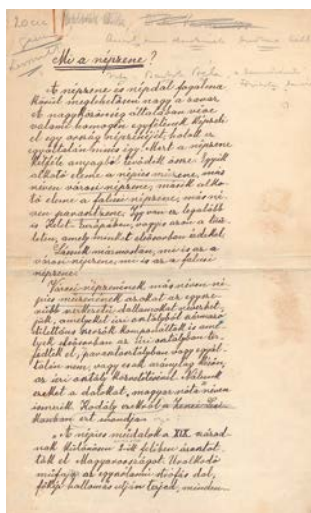 Mi a népzene?
A népzene és népdal fogalma
körül meglehetősen nagy a zavar.
A nagyközönség általában véve
valami homogén egységnek képzeli
el egy ország népzenéjét, holott ez
egyáltalán nincs így. Mert a népzene
kétféle anyagból tevődik össze. Egyik
alkotó eleme a népies műzene, más
néven városi népzene; másik alko-
tó eleme a falusi népzene, más né-
ven parasztzene. Így van ez legalább
is Kelet-Európában, vagyis azon a terü-
leten, amely minket elsősorban érdekel.
Lássuk mármost, mi is az a
városi népzene, mi is az a falusi
népzene.
Városi népzenének más néven né-
pies műzenének azokat az egysze-
rűbb szerkezetű dallamokat nevezhet-
jük, amelyeket úri osztályból
dilettáns szerzők komponáltak és ame-
lyek elsősorban az úri osztályban ter-
jedtek el, parasztosztályban vagy egyál-
talán nem, vagy csak aránylag későn,
az úri osztály közvetítésével. Nálunk
ezeket a dalokat „magyar nóta" néven
ismerik. Kodály ezekről a Zenei Lexi-
konban ezt mondja:
„A népies műdalok a XIX. század-
nak különösen 2-ik felében árasztot-
ták el Magyarországot. Uralkodó
műfaj az egyszólamú strófás dal,
főkép hallomás útján terjed, minden-